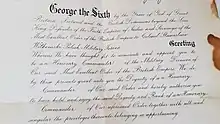 George the Sixth by the Grace of God of Great
Britain, Ireland and the British Dominions beyond the Seas
King, Defender of the Faith, Emperor of India and Sovereign of the
Most Excellent Order of the British Empire to Colonel Stanislaw
Polish Military Forces Greeting
Whereas We have thought fit to nominate and appoint you to
be an Honorary Commander of the Military Division of
Our said Most Excellent Order of the British Empire We do
by these presents grant unto you the Dignity of an Honorary
Commander of Our said Order and hereby authorise you
to have hold and enjoy the said Dignity and Rank of an Honorary
Commander of Our aforesaid Order together with all and
singular the privileges thereunto belonging or appertaining